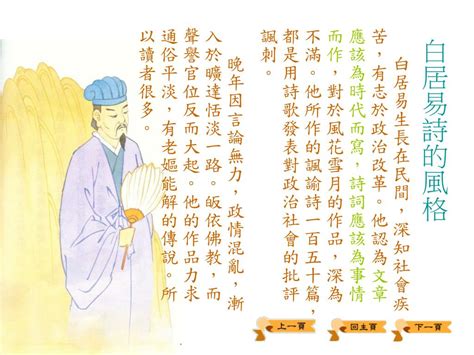 白居易詩的風格
白居易生長在民間，深知社會疾
苦，有志於政治改革。他認為文章
應該為時代而寫，詩詞應該為事情
而作，對於風花雪月的作品，深為
不滿。他所作的諷諭詩一百五十篇，
都是用詩歌發表對政治社會的批評
諷刺。
晚年因言論無力，政情混亂，漸
入於曠達恬淡一路。皈依佛教，而
聲譽官位反而大起。他的作品力求
通俗平淡，有老嫗能解的傳說。所
以讀者很多。
上一頁
回主頁
下一頁